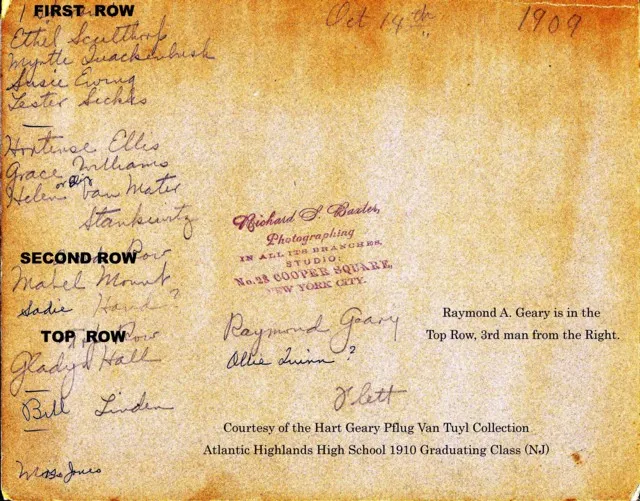 FIRST ROW
Oct 14th 1909
Ethel Sculthorp
Myrtle Quackenbush
Susie Ewing
Lester Sickles
Hortense Ellis
Grace Williams
Helen or Elsie Van Mater
Stankiewitz
Richard S. Baxter,
Photographing
IN ALL ITS BRANCHES,
STUDIO:
No. 23 COOPER SQUARE,
NEW YORK CITY.
SECOND ROW
Row
Mabel Mount
Sadie Hand?
Raymond A. Geary is in the
Top Row, 3rd man from the Right.
TOP ROW
Row
Raymond Geary
Gladys Hall
Ollie Quinn?
Bill Linden
Flett
Courtesy of the Hart Geary Pflug Van Tuyl Collection
Atlantic Highlands High School 1910 Graduating Class (NJ)
Jones